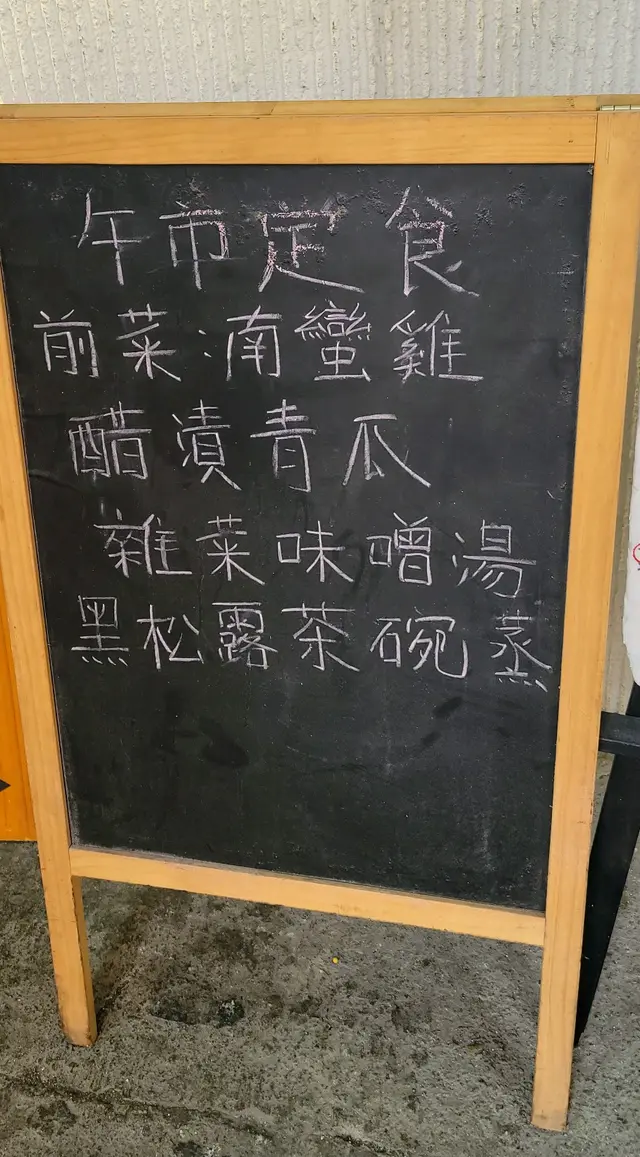 午市定食
前菜：南蠻雞
醋漬青瓜
雜菜味噌湯
黑松露茶碗蒸